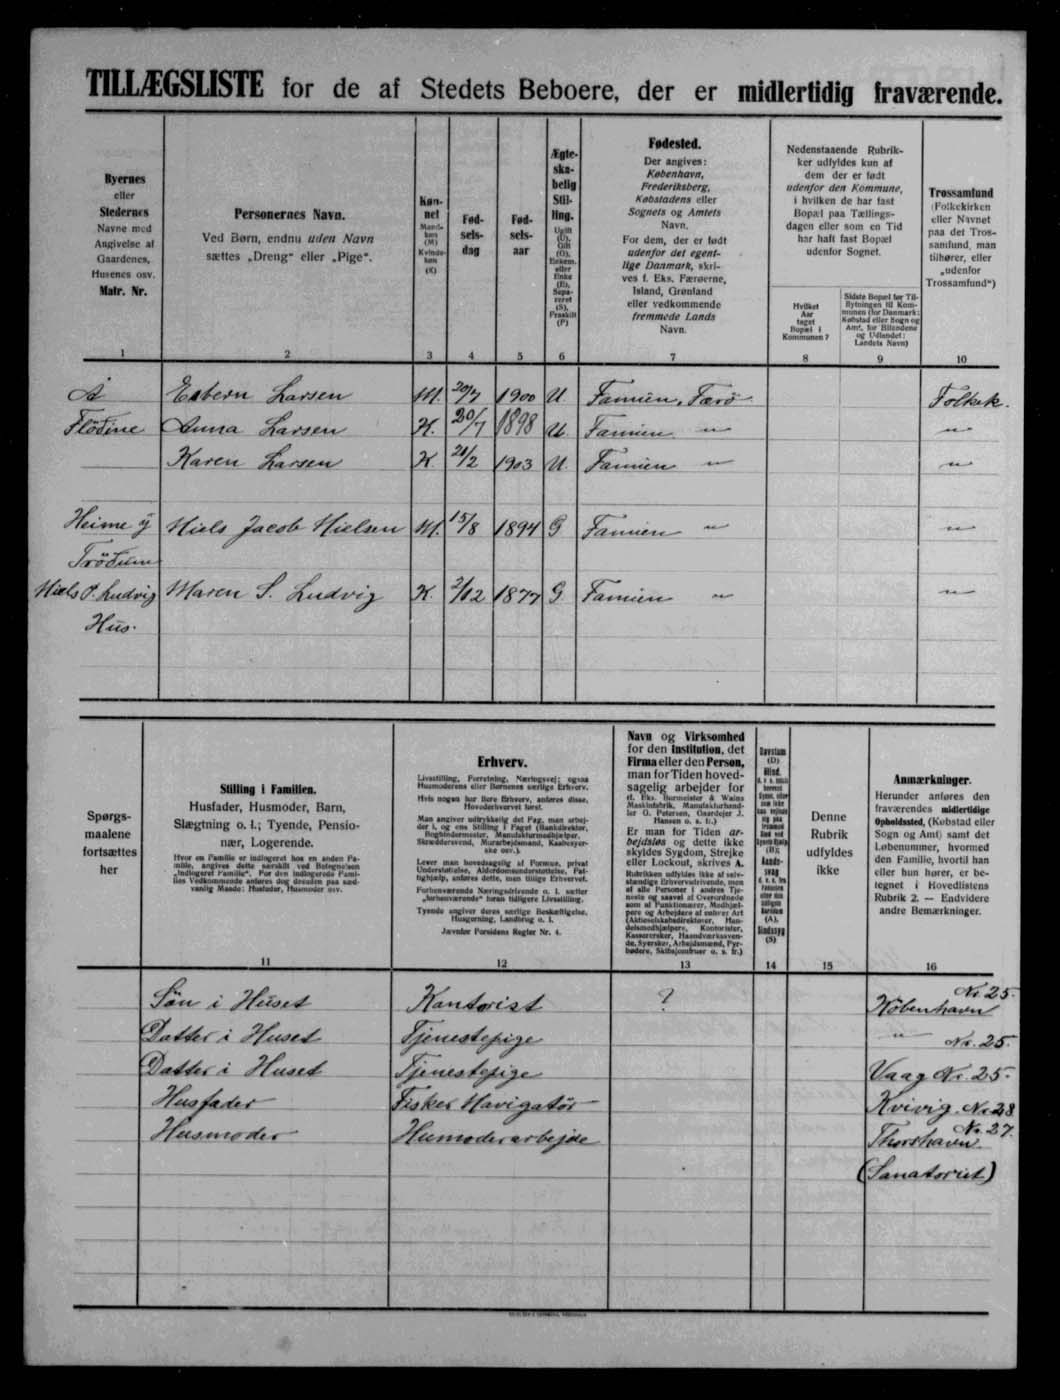 TILLÆGSLISTE for de af Stedets Beboere, der er midlertidig fraværende.
Byernes
eller
Stedernes
Navne med
Angivelse af
Gaardenes,
Husenes osv.
Matr. Nr.
1
Personernes Navn.
Ved Børn, endnu uden Navn
sættes „Dreng“ eller „Pige“.
2
Køn-
net
Mand-
køn
(M)
Kvinde-
køn
(K)
3
Fød-
sels-
dag
4
Fød-
sels-
aar
5
Ægte-
ska-
belig
Stil-
ling.
Ugift
(U),
Gift
(G),
Enkem.
eller
Enke
(E),
Sepa-
reret
(S),
Fraskilt
(F)
6
Fødested.
Der angives:
København,
Frederiksberg,
Købstadens eller
Sognets og Amtets
Navn.
For dem, der er født
udenfor det egent-
lige Danmark, skri-
ves f. Eks. Færøerne,
Island, Grønland
eller vedkommende
fremmede Lands
Navn.
7
Nedenstaaende Rubrik-
ker udfyldes kun af
dem der er født
udenfor den Kommune,
i hvilken de har fast
Bopæl paa Tællings-
dagen eller som en Tid
har haft fast Bopæl
udenfor Sognet.
Hvilket
Aar
taget
Bopæl i
Kommunen?
8
Sidste Bopæl før Til-
flytningen til Kom-
munen (for Danmark:
Købstad eller Sogn og
Amt, for Bilandene
og Udlandet:
Landets Navn)
9
Trossamfund
(Folkekirken
eller Navnet
paa det Tros-
samfund, man
tilhører, eller
„udenfor
Trossamfund“)
10
Å Esbern Larsen M. 20/7 1900 U Famien, Færø Folkek.
Flötine Anna Larsen K. 20/7 1898 U. Famien " "
Karen Larsen K 21/2 1903 U. Famien " "
Heime ý Niels Jacob Nielsen M. 15/8 1894 G Famien " "
Tröðum
Niels P. Ludvig Maren S. Ludvig K. 2/12 1877 G. Famien " "
Hus.
Spørgs-
maalene
fortsættes
her
Stilling i Familien.
Husfader, Husmoder, Barn,
Slægtning o. l.; Tyende, Pensio-
nær, Logerende.
Hvor en Familie er indlogeret hos en anden Fa-
milie, angives dette særskilt ved Betegnelsen
„Indlogeret Familie“. For den indlogerede Fami-
lies Vedkommende anføres dog desuden paa sæd-
vanlig Maade: Husfader, Husmoder osv.
11
Erhverv.
Livsstilling, Forretning, Næringsvej; ogsaa
Husmoderens eller Børnenes særlige Erhverv.
Hvis nogen har flere Erhverv, anføres disse,
Hovederhvervet først.
Man angiver udtrykkelig det Fag, man arbej-
der i, og ens Stilling i Faget (Bankdirektør,
Bogbindermester, Manufakturmedhjælper,
Skræddersvend, Murarbejdsmand, Kasbesyer-
ske osv.).
Lever man hovedsagelig af Formue, privat
Understøttelse, Alderdomsunderstøttelse, Fat-
tighjælp, anføres dette, men tillige Erhvervet.
Forhenværende Næringsdrivende o. l. sætter
„forhenværende“ foran tidligere Livsstilling.
Tyende angiver deres særlige Beskæftigelse,
Husgerning, Landbrug o. l.
Jævnfør Forsidens Regler Nr. 4.
12
Navn og Virksomhed
for den Institution, det
Firma eller den Person,
man for Tiden hoved-
sagelig arbejder for
(f. Eks. Burmeister & Wains
Maskinfabrik, Manufakturhand-
ler G. Petersen, Gaardejer J.
Hansen o. s. fr.)
Er man for Tiden ar-
bejdsløs og dette ikke
skyldes Sygdom, Strejke
eller Lockout, skrives A.
Rubrikken udfyldes ikke af selv-
stændige Erhvervsdrivende, men
af alle Personer i andres Tje-
neste og saavel af Overordnede
som af Funktionærer, Medhjæl-
pere og Arbejdere af enhver Art
(Aktieselskabsdirektører, Han-
delsmedhjælpere, Kontorister,
Kassererske, Haandværkssven-
de, Syersker, Arbejdsmænd, Fyr-
bødere, Skibsjomfruer o. s. fr.)
13
Døvstum
(D)
Blind,
Aands-
svag
(A),
Sindssyg
(S)
14
Denne
Rubrik
udfyldes
ikke
15
Anmærkninger.
Herunder anføres den
fraværendes midlertidige
Opholdssted, (Købstad eller
Sogn og Amt) samt det
Løbenummer, hvormed
den Familie, hvortil han
eller hun hører, er be-
tegnet i Hovedlistens
Rubrik 2. — Endvidere
andre Bemærkninger.
16
Søn i Huset Kontorist ? København Nr. 25.
Datter i Huset Tjenestepige " Nr. 25.
Datter i Huset Tjenestepige Vaag Nr. 25.
Husfader Fisker Navigatör Kvivig. Nr. 28
Husmoder Husmoderarbejde Thorshavn Nr. 27.
(Sanatoriet)